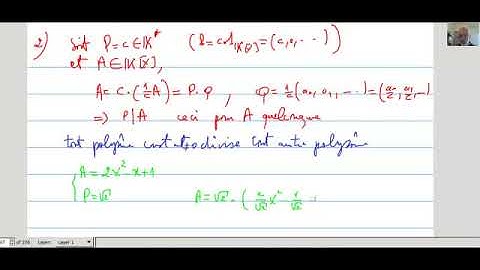 2) Soit P = c ∈ 𝕂* (P = c·1_{𝕂[X]} = (c, 0, ...))
et A ∈ 𝕂[X],
A = c·(1/c A) = P·Q , Q = 1/c (a₀, a₁, ...) = (a₀/c, a₁/c, ...)
⇒ P | A ceci pour A quelconque
tout polynôme const ≠ 0 divise tout autre polynôme
{ A = 2x² - x + 1
P = √2 A = √2 · ( 2/√2 x² - 1/√2
Layer: Layer 1